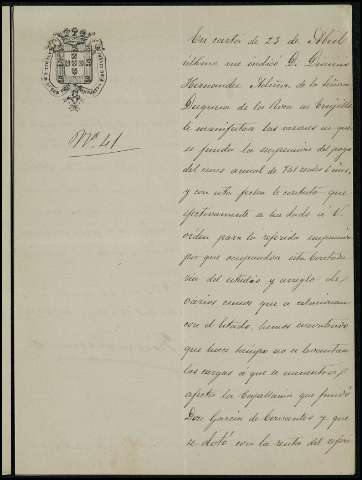 Nº 41
En carta de 23 de Abril
último me indicó D.
Hernandez de la Señora
Duquesa de la Roca en Trujillo
le manifestara las razones en que
se funda la suspension del pago
del censo anual de 741 reales
y con esta fecha le contesto que
efectivamente se ha dado á V.
orden para la referida suspension
por que ocupandose esta Contadu-
ria del estudio y arreglo de
varios censos que se relacionan
con el Estado, hemos encontrado
que hace tiempo no se levantan
las cargas á que se encuentra
afecta la Capellania que fundó
Don Garcia de Cervantes y que
se dotó con la renta del referi